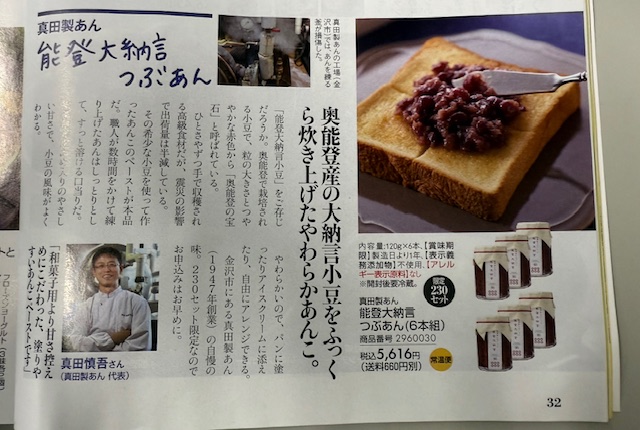 真田製あん
能登大納言
つぶあん
真田製あんの工場(金
沢市)では、あんを練る
釜が損傷した。
奥能登産の大納言小豆をふっく
ら炊き上げたやわらかあんこ。
「能登大納言小豆」をご存じ
だろうか。奥能登で栽培され
る小豆で、粒の大きさとつや
やかな赤色から「奥能登の宝
石」と呼ばれている。
ひとさやずつ手で収穫され
る高級食材だが、震災の影響
で出荷量は半減している。
その希少な小豆を使って作
ったあんこのペーストが本品
だ。職人が数時間をかけて練
り上げたあんはしっとりとし
て、すっと溶ける口当りだ。
入りのやさし
い甘さで、小豆の風味がよく
わかる。
やわらかいので、パンに塗
ったりアイスクリームに添え
たり、自由にアレンジできる。
金沢市にある真田製あん
(1947年創業)の自慢の
味。230セット限定なので
お申込みはお早めに。
「和菓子用より甘さ控え
めにこだわった、塗りや
すいあんこペーストです」
真田慎吾さん
(真田製あん 代表)
内容量:120g×6本、【賞味期
限】製造日より1年、【表示義
務添加物】不使用、【アレル
ギー表示原料】なし
※開封後要冷蔵。
限定
230
セット
真田製あん
能登大納言
つぶあん(6本組)
商品番号 2960030
税込5,616円
(送料660円別)
常温便
32